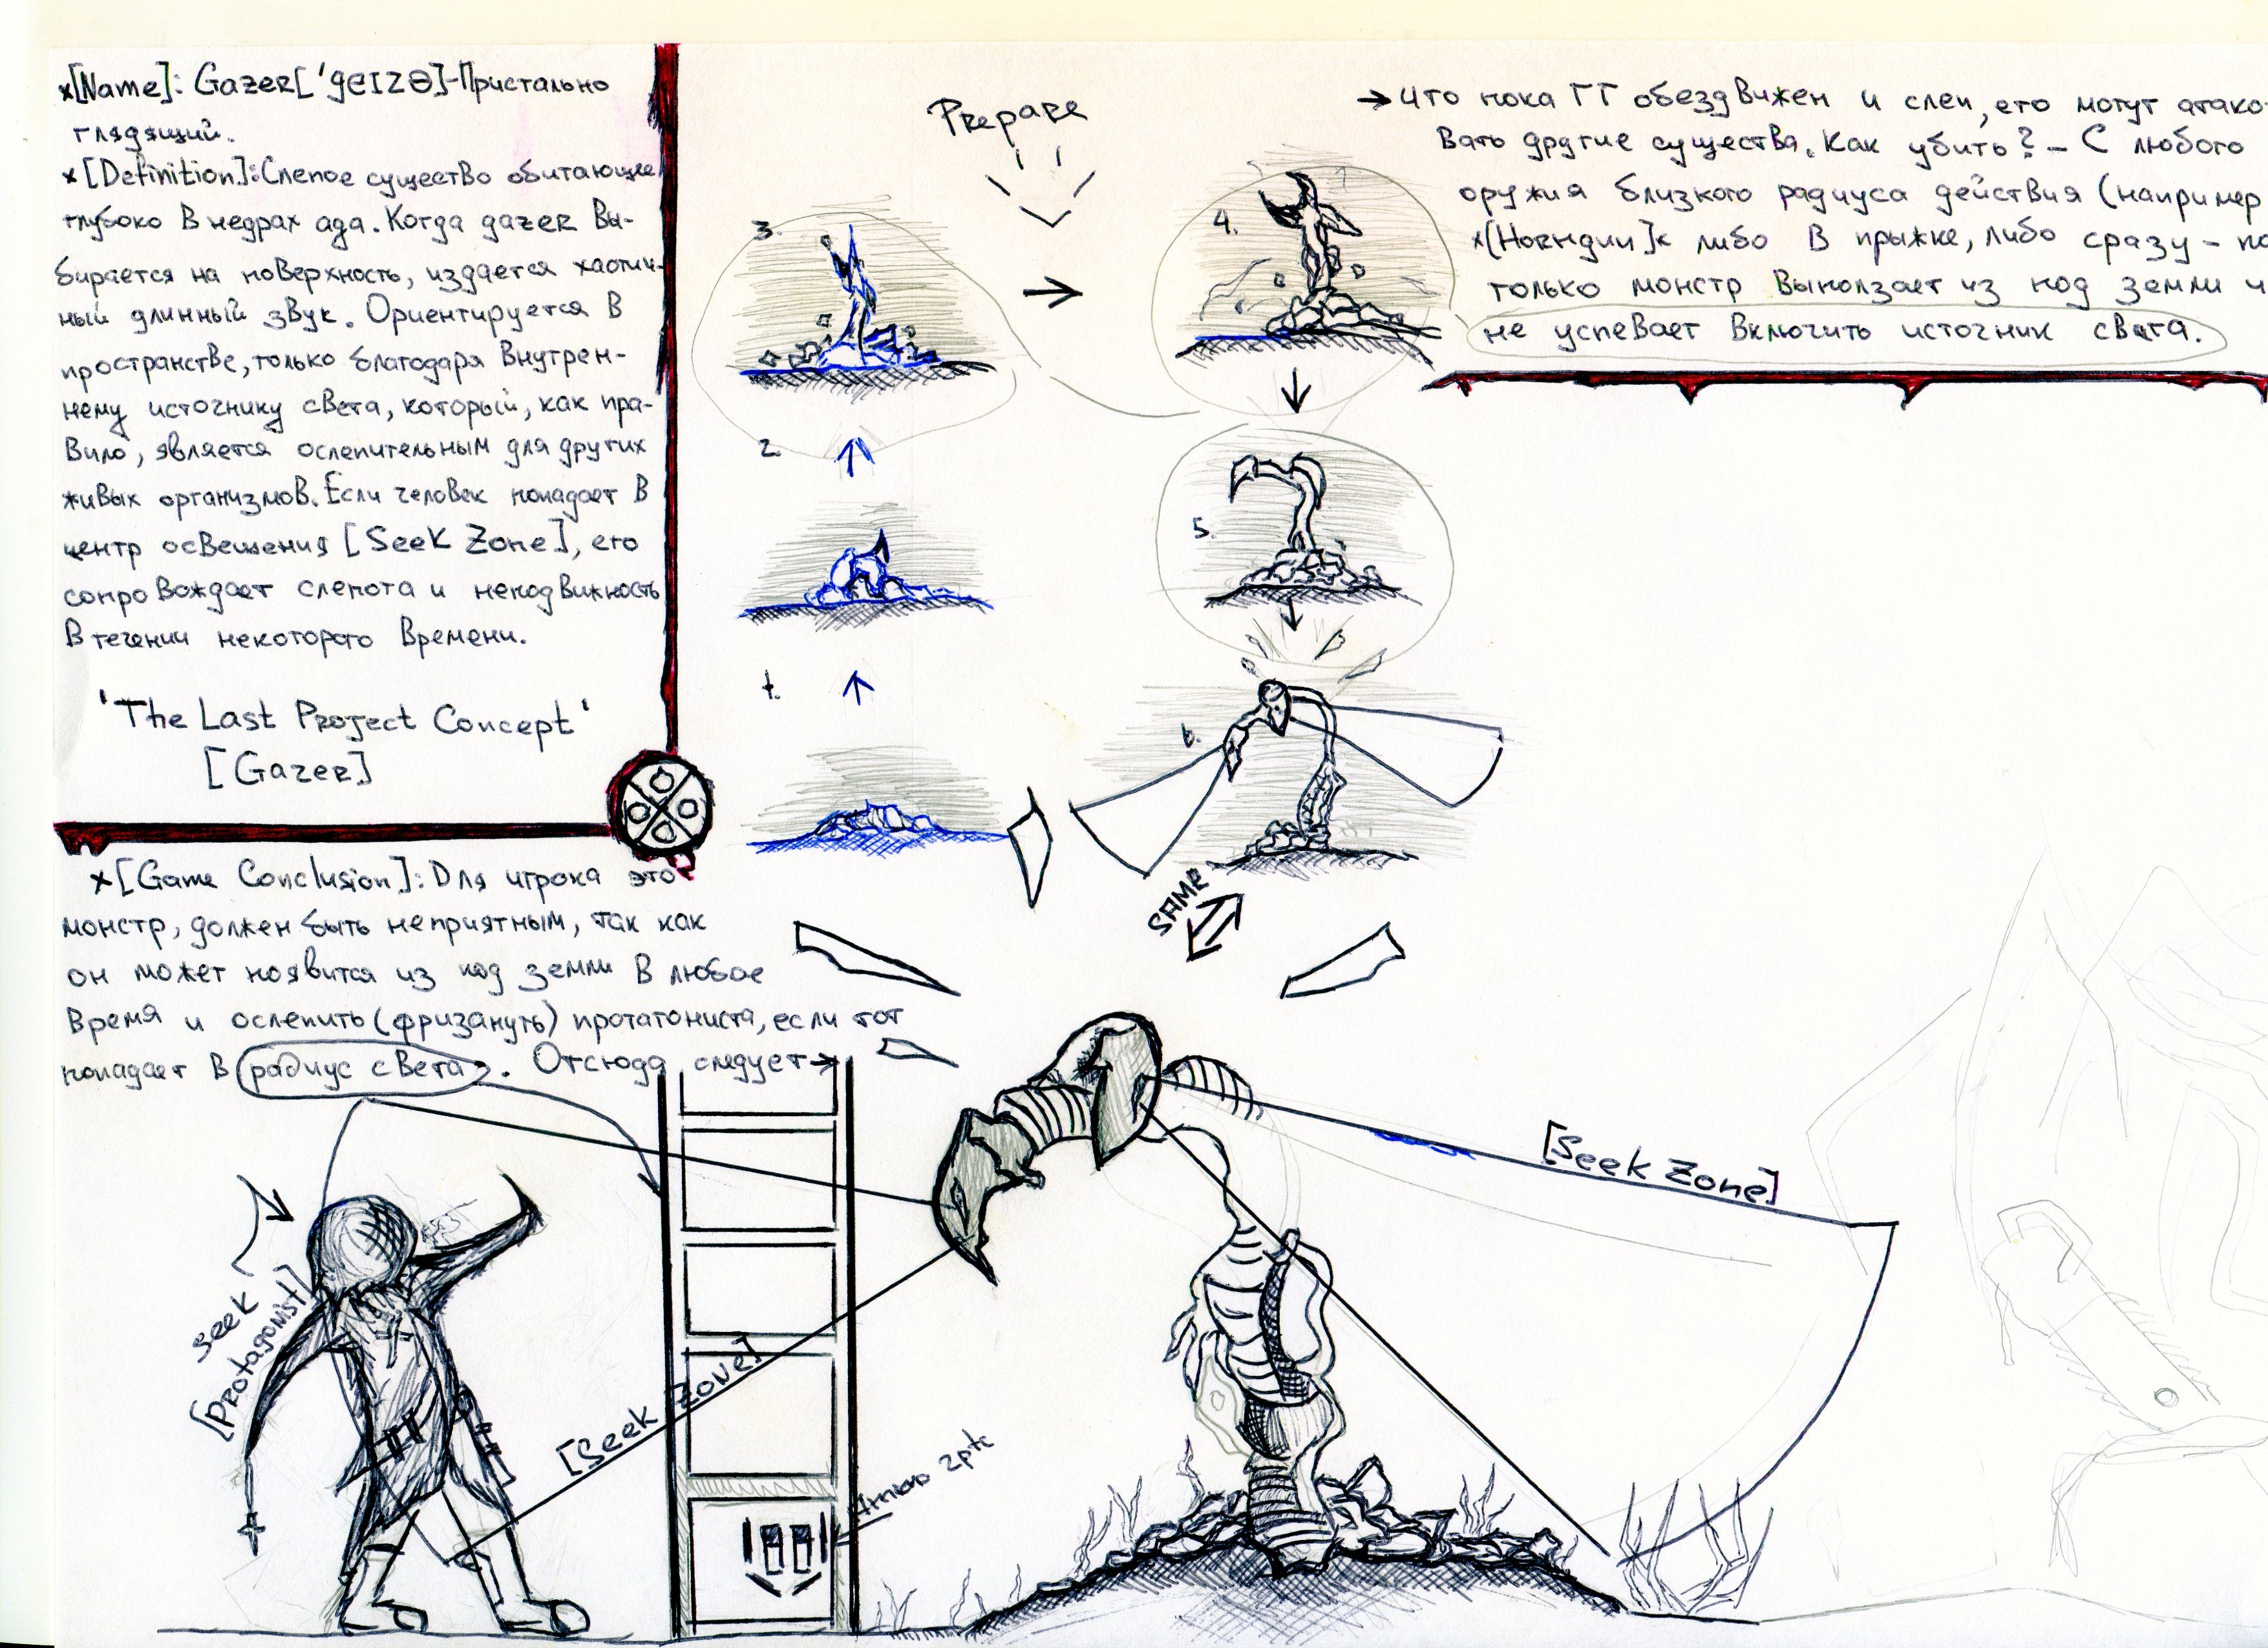 ×[Name]: Gazer['geIzə]-Пристально
глядящий.
×[Definition]: Слепое существо обитающее
глубоко в недрах ада. Когда gazer вы-
бирается на поверхность, издается хаотич-
ный длинный звук. Ориентируется в
пространстве, только благодаря внутрен-
нему источнику света, который, как пра-
вило, является ослепительным для других
живых организмов. Если человек попадает в
центр освещения [Seek Zone], его
сопровождает слепота и неподвижность
в течении некоторого времени.
'The Last Project Concept'
[Gazer]
×[Game Conclusion]: Для игрока это
монстр, должен быть неприятным, так как
он может появится из под земли в любое
время и ослепить (фризануть) протагониста, если тот
попадает в радиус света. Отсюда следует→
→ что пока ГГ обездвижен и слеп, его могут атако-
вать другие существа. Как убить? - С любого
оружия близкого радиуса действия (например
×[Horngun]× либо в прыжке, либо сразу -
только монстр выползает из под земли
не успевает включить источник света.
Prepare
3.
4.
2
5.
1.
6.
SAME
[Seek Zone]
Seek
[Protagonist]
[Seek Zone]